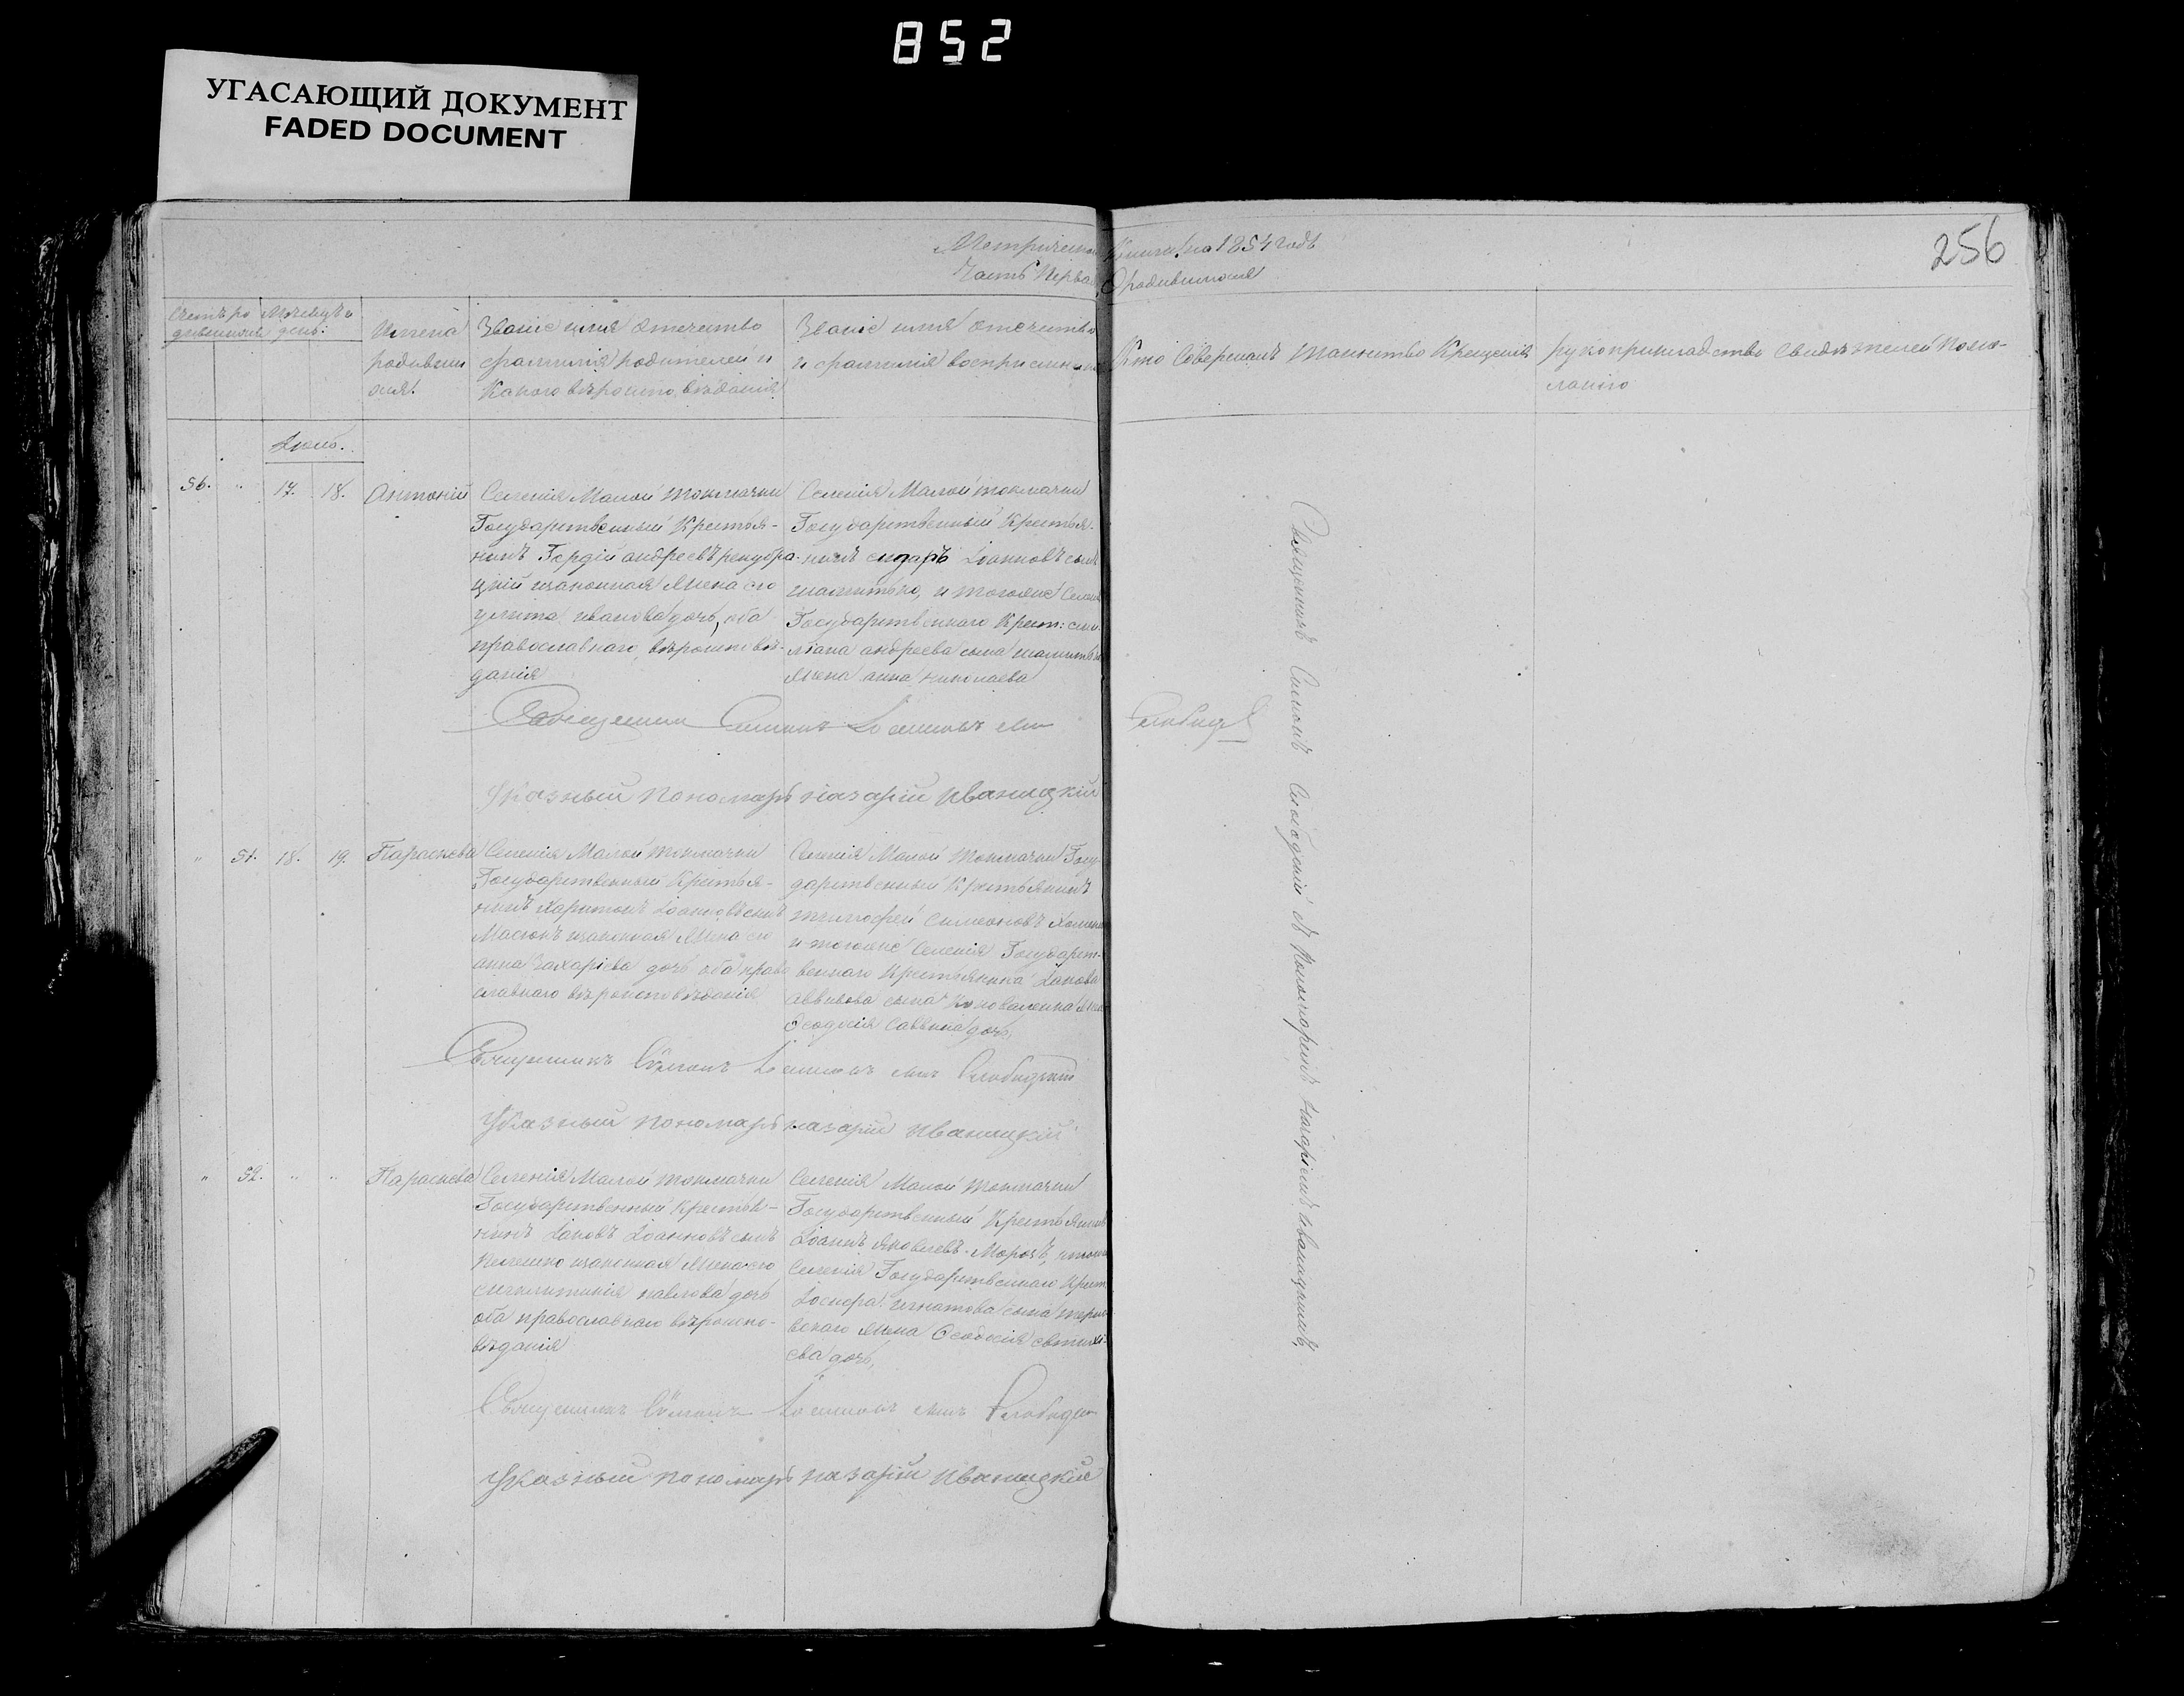 852
УГАСАЮЩИЙ ДОКУМЕНТ
FADED DOCUMENT
256
Метрическая Книга на 1854 годъ
Часть Первая О родившихся
Счетъ ро дившихся
Мѣсяцъ и день:
Имена родивши хся.
Званіе имя отечество
фамилія родителей и
Какого вѣроисповѣданія
Званіе имя отечество
и фамилія воспріемниковъ
Кто Совершалъ таинство Крещенія
рукоприкладство Свидѣтелей по же-
ланію
Іюнь.
56. " 17. 18. Антоній
Селенія Малой токмачки
Государственный Крестья-
нинъ Гордій андреевъ
законная Жена его
улита иванова дочь, оба
православнаго вѣроисповѣ-
данія
Селенія Малой токмачки
Государственный Крестья-
нинъ сидоръ Іоанновъ сынъ
и тогоже Селенія
Государственнаго Крест:
андреева сына
Жена анна николаева
Священникъ Симонъ Іосифовъ сынъ Слободскій
Указный пономарь назарій Иваницкій
" 51. 18. 19. Параскева
Селенія Малой токмачки
Государственный Крестья-
нинъ Харитонъ Іоанновъ сынъ
Масюкъ законная Жена его
анна Захаріева дочь оба право
славнаго вѣроисповѣданія
Селенія Малой токмачки Госу-
дарственный Крестьянинъ
тимофей Симеоновъ
и тогоже Селенія Государст-
веннаго Крестьянина Іакова
сына Коноваленка Жена
Ѳеодосія Саввина дочь,
Священникъ Симонъ Іосифовъ сынъ Слободскій
Указный пономарь назарій Иваницкій
" 52. " " Параскева
Селенія Малой токмачки
Государственный Крестья-
нинъ Іаковъ Іоанновъ сынъ
законная Жена его
павлова дочь
оба православнаго вѣроиспо-
вѣданія
Селенія Малой токмачки
Государственный Крестьянинъ
Іоаннъ Яковлевъ Морозъ, и тогоже
Селенія Государственнаго Крест
Іосифа игнатова сына
Жена Ѳеодосія
ева дочь,
Священникъ Симонъ Іосифовъ сынъ Слободскій
Указный пономарь назарій Иваницкій
Священникъ Симонъ Слободскій съ Пономаремъ Назаріемъ Иваницкимъ,